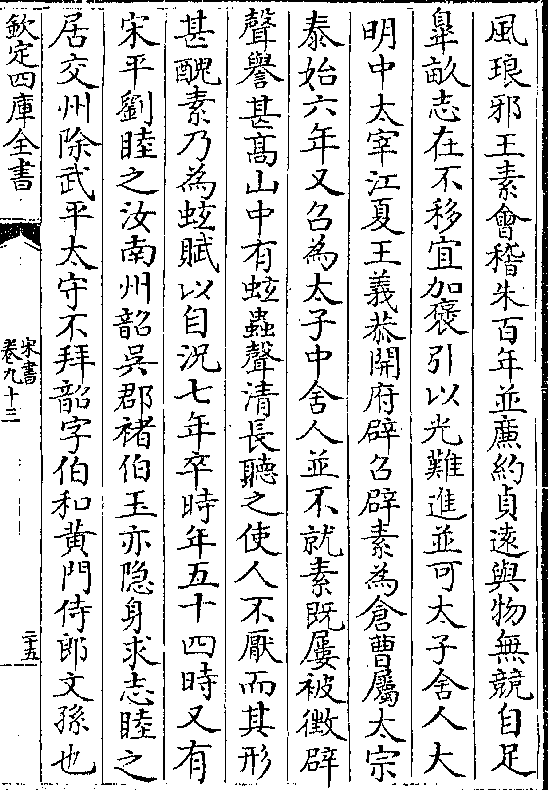 風琅邪王素會稽朱百年並廉約貞遠與物無競自足
臯畝志在不移宜加褒引以光難進並可太子舍人大
明中太宰江夏王義恭開府辟召辟素為倉曹屬太宗
泰始六年又召為太子中舍人並不就素既屢被徵辟
聲譽甚髙山中有蚿蟲聲清長聽之使人不厭而其形
甚醜素乃為蚿賦以自況七年卒時年五十四時又有
宋平劉睦之汝南州韶吳郡褚伯玉亦隐身求志睦之
居交州除武平太守不拜韶字伯和黄門侍郎文孫也
欽定四庫全書
宋書
卷九十三
二十五